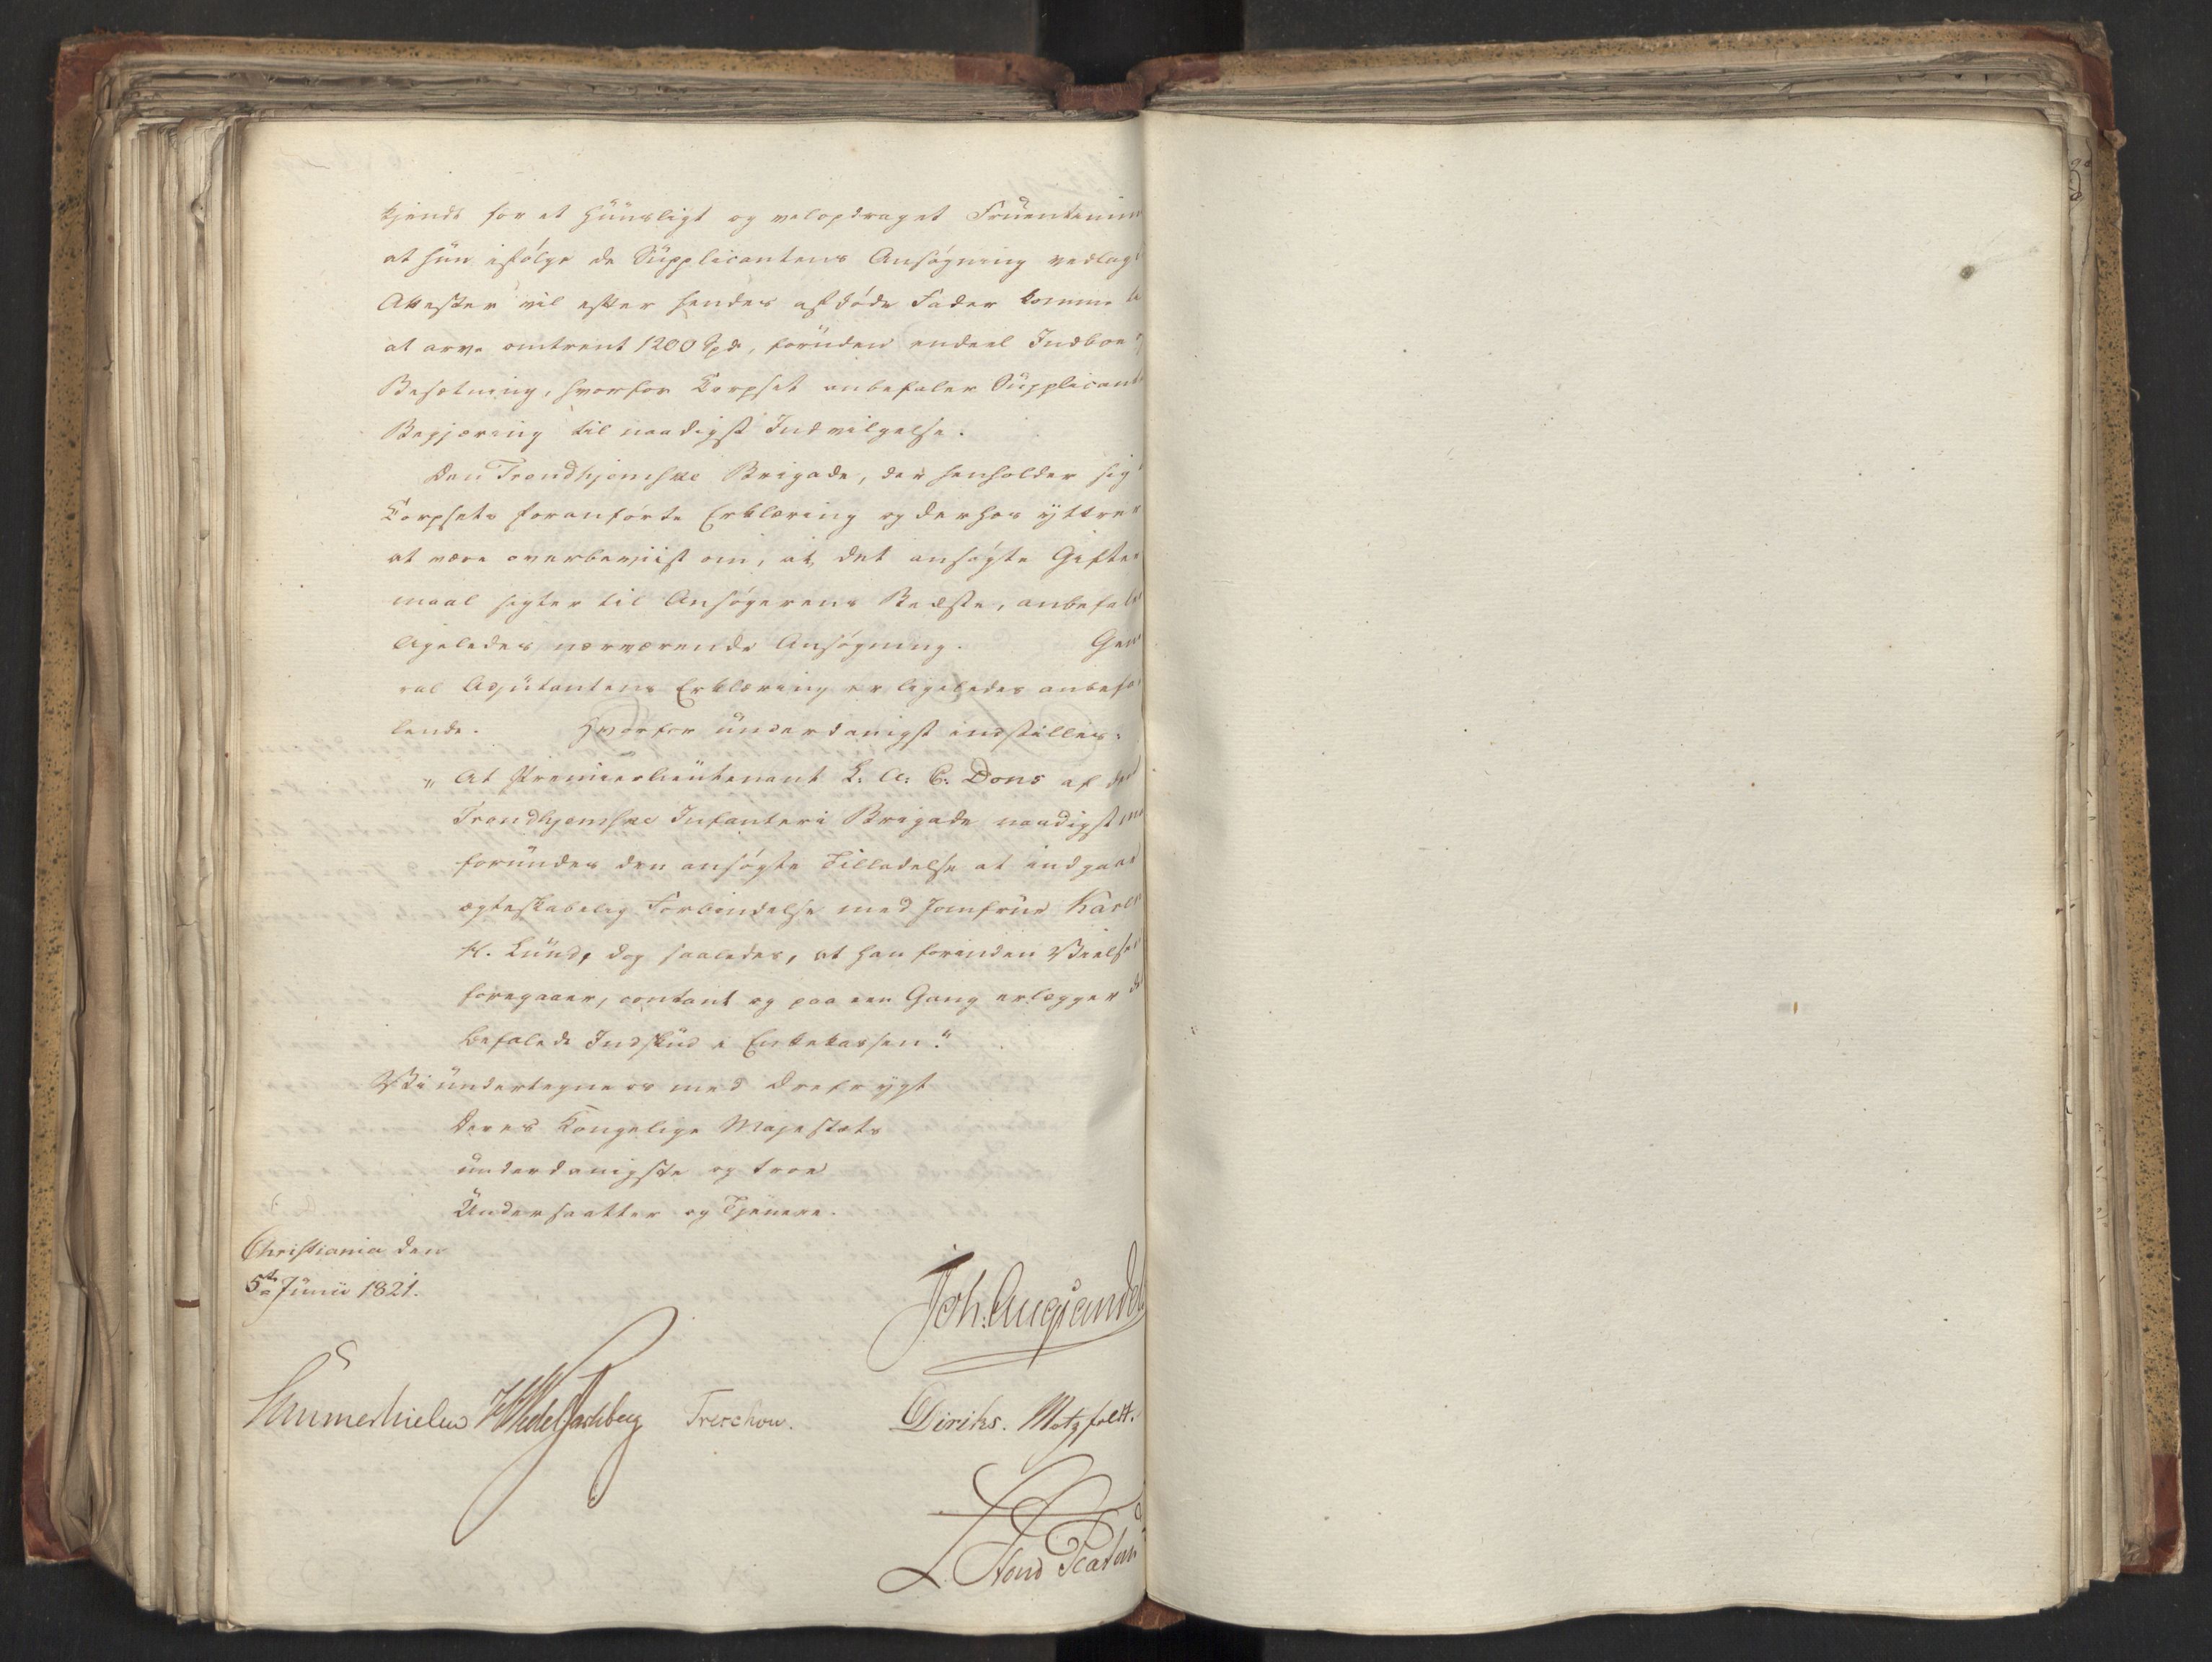 kjendt for et huusligt og velopdraget Fruentimm
at hun ifölge de Supplicantens Ansögning vedlag
Attester vil efter hendes afdöde Fader komme
at arve omtrent 1200 Spd, foruden endeel Indboe
Besætning, hvorfor Corpset anbefaler Supplicant
Begjæring til naadigst Indvilgelse.
Den Trondhjemske Brigade, der henholder sig
Corpsets foranförte Erklæring og derhos yttrer
at være overbeviist om, at det ansögte Gifter
maal sigter til Ansögerens Bedste, anbefal
ligeledes nærværende Ansögning. Gene
ral Adjutantens Erklæring er ligeledes anbefa
lende. Hvorfor underdanigst indstilles:
„At Premierlieutenant L. A. C. Dons af den
Trondhjemske Infanteri Brigade naadigst maa
forundes den ansögte Tilladelse at indgaae
ægteskabelig Forbindelse med Jomfrue Karen
H. Lund, dog saaledes, at han forinden Vielsen
foregaaer, contant og paa een Gang erlægger de
befalede Indskud i Enkekassen."
Vi undertegne os med Drefrygt
Deres Kongelige Majestæts
underdanigste og troe
Undersaatter og Tjenere.
Christiania den
5te Junii 1821.
Joh: Aug Sandel
Sommerhielm HWedelJarlsberg Treschow. Diriks. Motzfeldt.